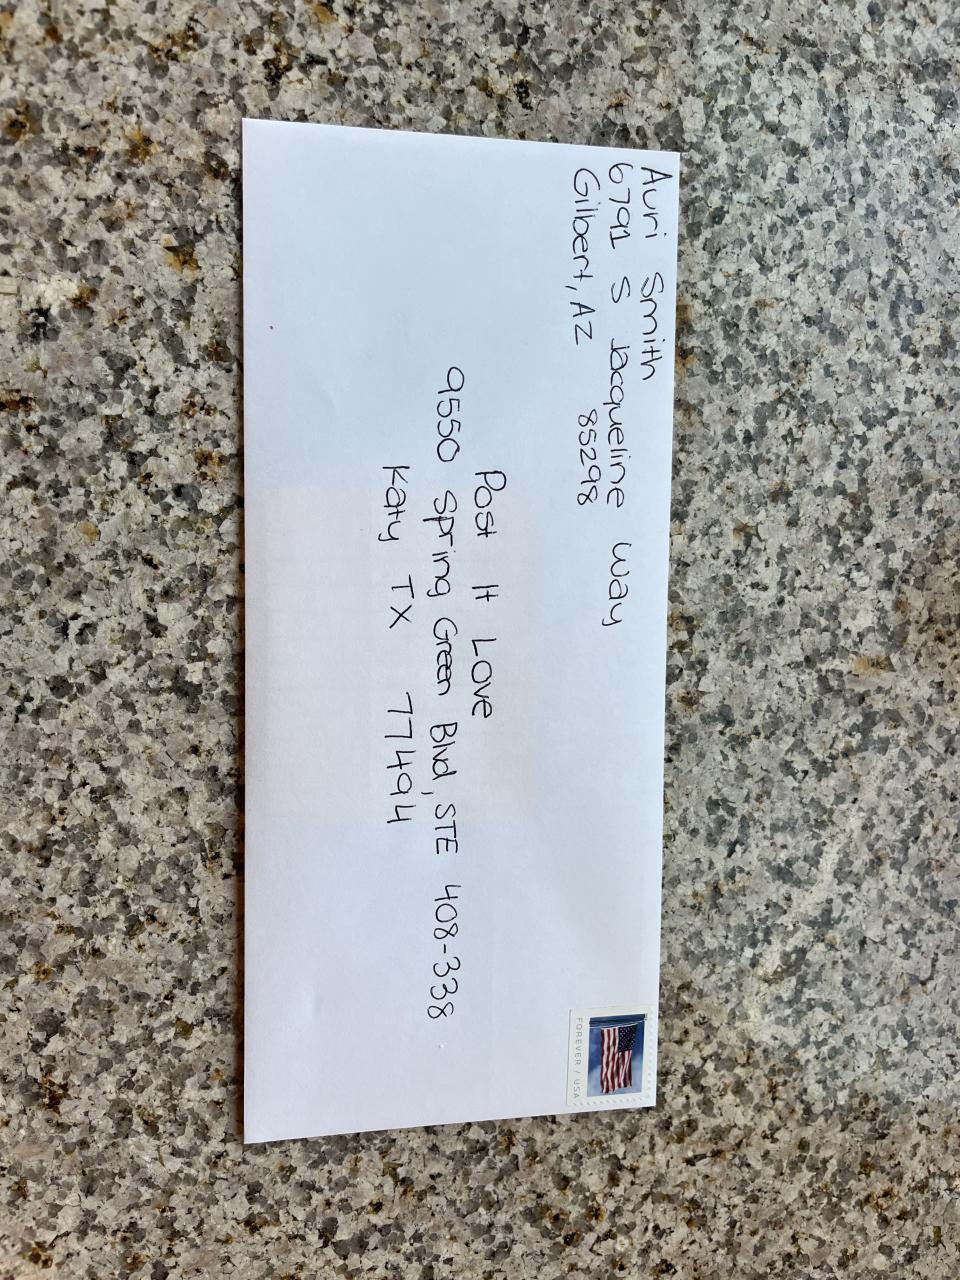 Auri Smith
6791 S Jacqueline Way
Gilbert, AZ 85298
FOREVER / USA
Post It Love
9550 Spring Green Blvd, STE 408-338
Katy TX 77494